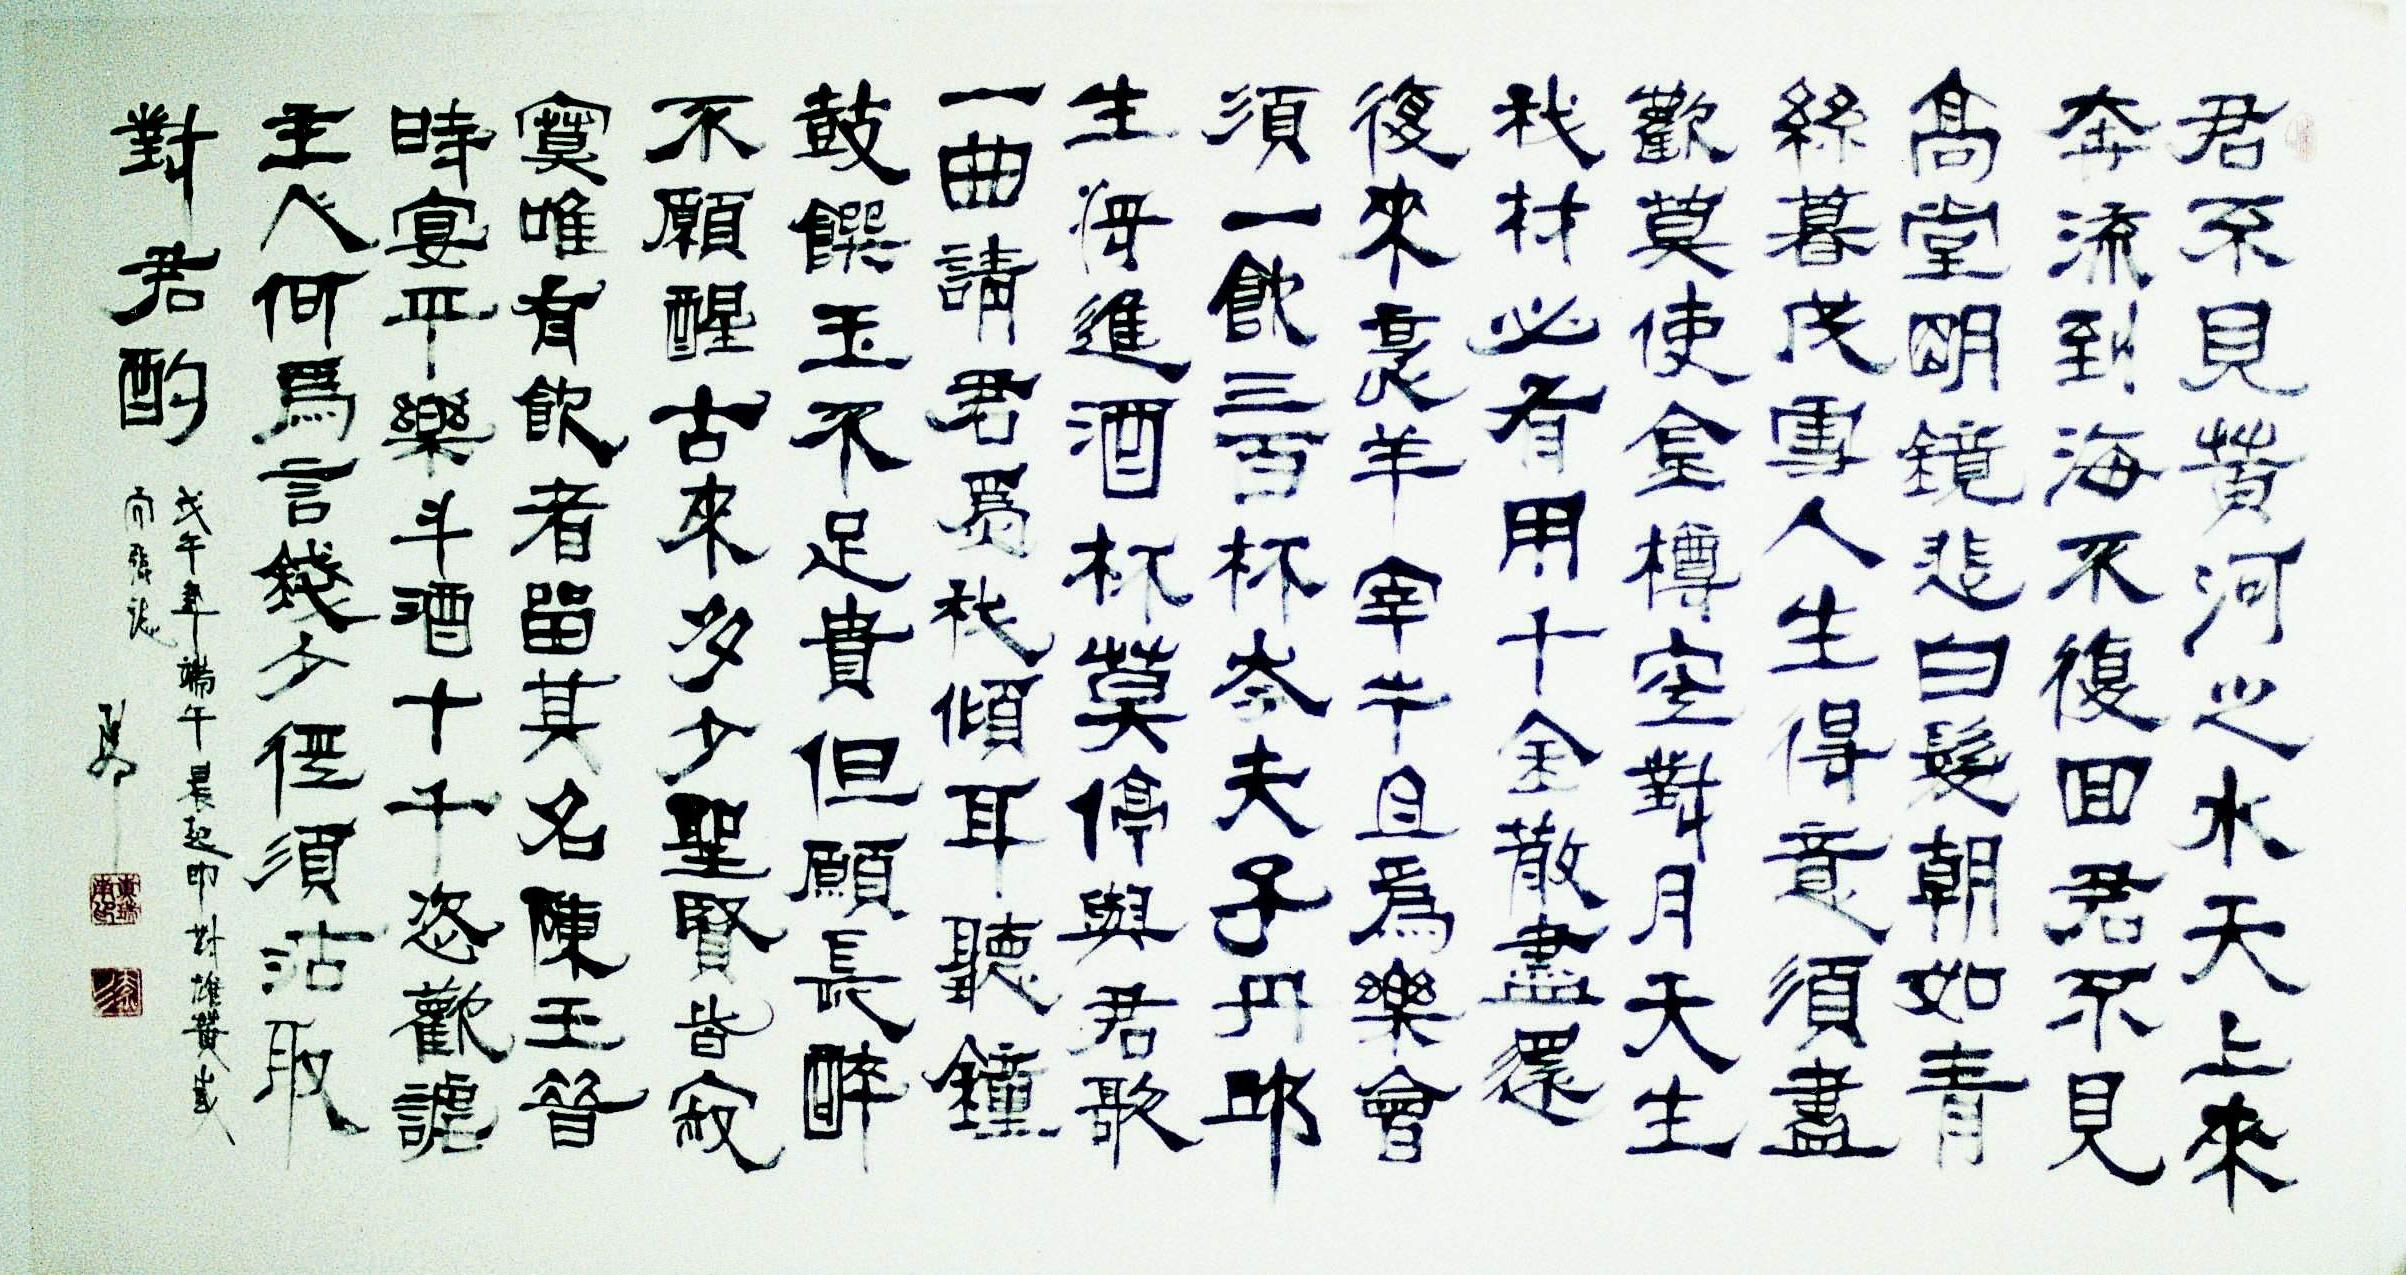 君不見黃河之水天上來
奔流到海不復回君不見
高堂明鏡悲白髮朝如青
絲暮成雪人生得意須盡
歡莫使金樽空對月天生
我材必有用千金散盡還
復來烹羊宰牛且爲樂會
須一飲三百杯岑夫子丹邱
生將進酒杯莫停與君歌
一曲請君爲我傾耳聽鐘
鼓饌玉不足貴但願長醉
不願醒古來多少聖賢皆寂
寞唯有飲者留其名陳王昔
時宴平樂斗酒十千恣歡謔
主人何爲言錢少徑須沽取
對君酌
戊午年端午晨起